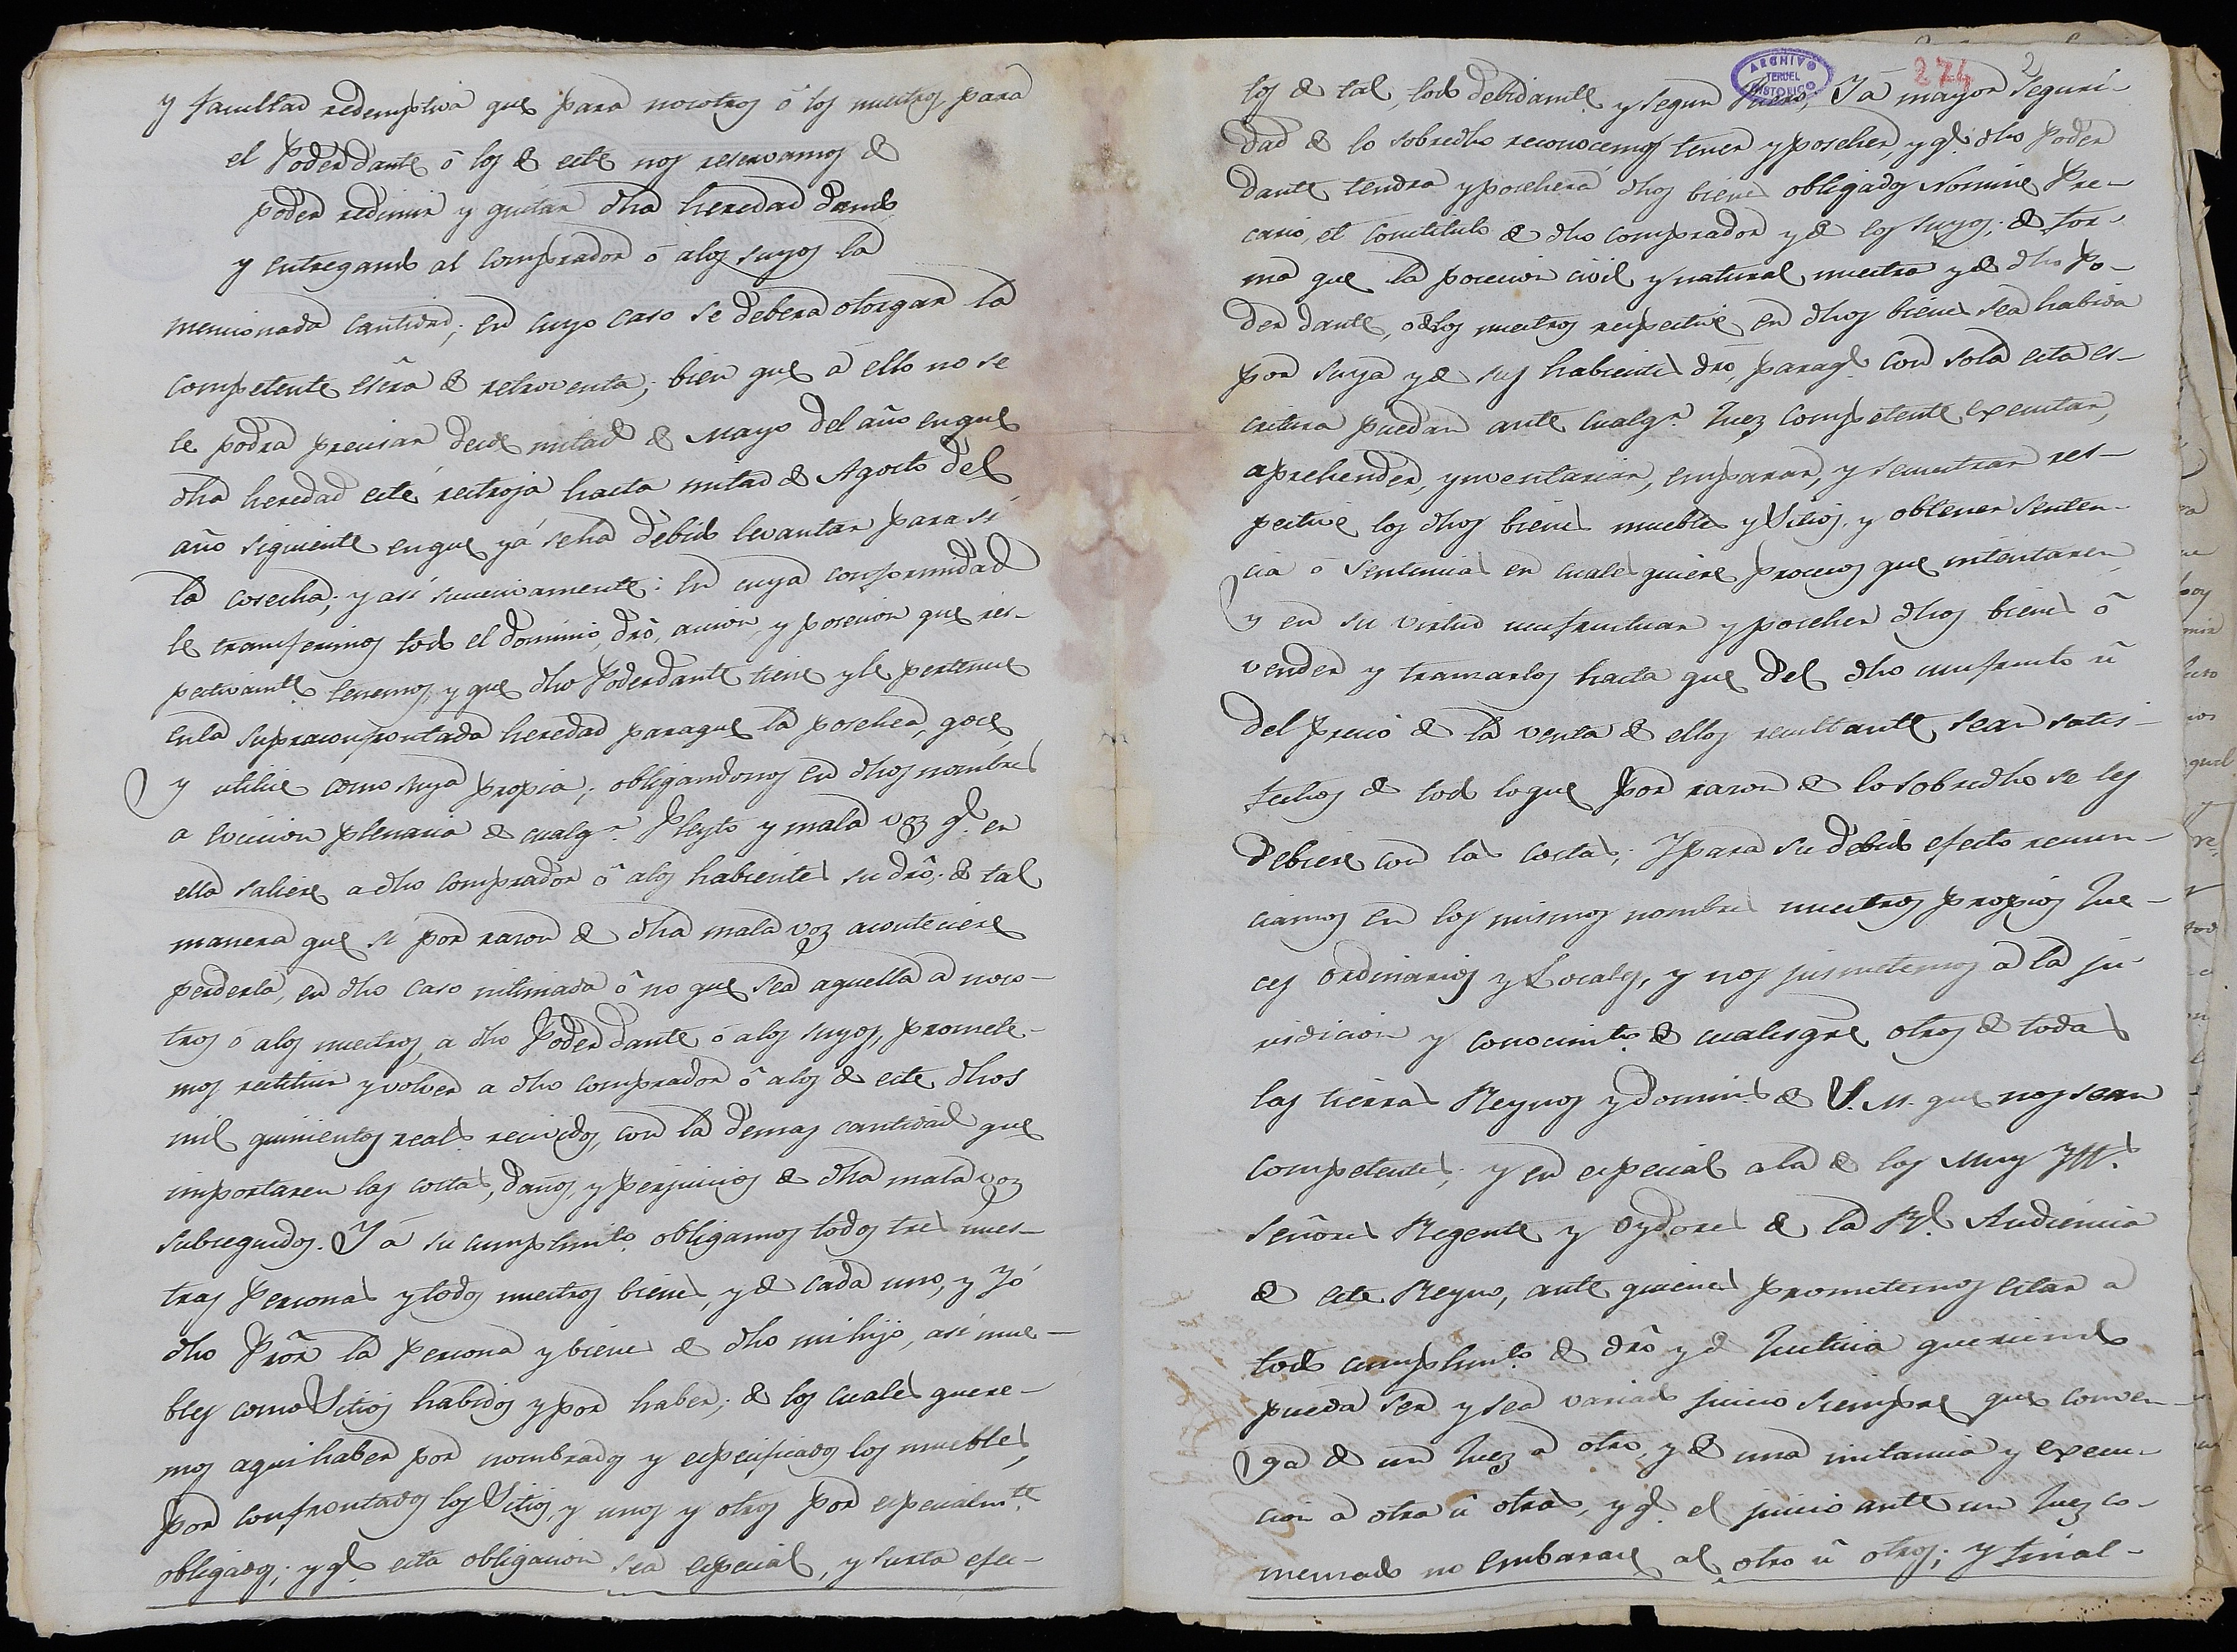 y facultad redemptiva que para nosotros ô los nuestros para
el Poder dante ô los de este nos reservamos de
poder redimir y quitar dha heredad dando
y entregando al comprador ó a los suyos la
mencionada cantidad; en cuyo caso se debera otorgar la
competente esc̃ra de retroventa; bien que a ello no se
le podra precisar desde mitad de Mayo del año en que
dha heredad esté restroja hasta mitad de Agosto del
año siguiente en que yá se ha debido levantar para sí
la cosecha; y así sucesivamente: En cuya conformidad
le transferimos todo el dominio, drô, accion, y posesion que res-
pectivamte. tenemos, y que dho Poderdante tiene y le pertenece
en la supraconfrontada heredad paraque la posehea, goce
y utilice como suya propia; obligandonos en dhos nombres
a eviccion plenaria de cualqr. Pleyto y mala voz qe. en
ella saliere a dho comprador ô a los habientes su drô; de tal
manera que si por razon de dha mala voz aconteciere
perderla, en dho caso intimada ô no que sea aquella a noso-
tros ó a los nuestros, a dho Poder dante ó a los suyos, promete-
mos restituir y volver a dho comprador ô a los de este dhos
mil quinientos reals. recividos, con la demas cantidad que
importaren las costas, daños, y perjuicios de dha mala voz
subseguidos. Y á su cumplimto. obligamos todos tres nues-
tras Personas y todos nuestros bienes, y de cada uno, y Yó
dho Prõr la Persona y bienes de dho mi hijo, así mue-
bles como Sitios habidos y por haber; de los cuales quere-
mos aqui haber por nombrados y especificados los muebles,
por confrontados los Sitios, y unos y otros por especialmte.
obligados; y qe. esta obligacion sea especial, y surta efec-
ARCHIVO
TERUEL
HISTORICO
274
2
tos de tal, todo debidamte. y segun Fuero. Y á mayor Seguri-
dad de lo sobredho reconocemos tener y poseher, y qe. dho Poder
dante tendra y posehera dhos bienes obligados Nomine Pre-
cario, et constituto de dho comprador y de los suyos; de for-
ma que la posesion civil y natural nuestra y de dho Po-
der dante, ô de los nuestros respective en dhos bienes sea habida
por suya y de sus habientes drô, paraqe. con sola esta es-
critura puedan ante cualqr. Juez competente executar,
aprehender, ynventariar, emparar, y secuestrar res-
pective los dhos bienes muebles y Sitios, y obtener senten-
cia ó Sentencias en cuales quiere procesos que intentaren
y en su virtud usufructuar y poseher dhos bienes ô
vender y tranzarlos hasta que del dho usufructo û
del precio de la venta de ellos resultante, sean satis-
fechos de todo lo que por razon de lo sobredho se les
debiere con las costas; Y para su debido efecto renun-
ciamos en los mismos nombres nuestros propios Jue-
ces Ordinarios y Locales, y nos jusmetemos a la ju-
risdicion y conocimto. de cualesqre. otros de todas
las tierras Reynos y dominios de S. M. que nos sean
competentes; y en especial a la de los Muy Ylls.
Señores Regente y Oydores de la Rl. Audiencia
de este Reyno, ante quienes prometemos estar a
todo cumplimto. de drô y de Justicia queriendo
pueda ser y sea variado juicio siempre que conven-
ga de un Juez a otro y de una instancia y execu-
cion a otra û otras, y qe. el juicio ante un Juez co-
menzado no embarace al otro û otros; y final-